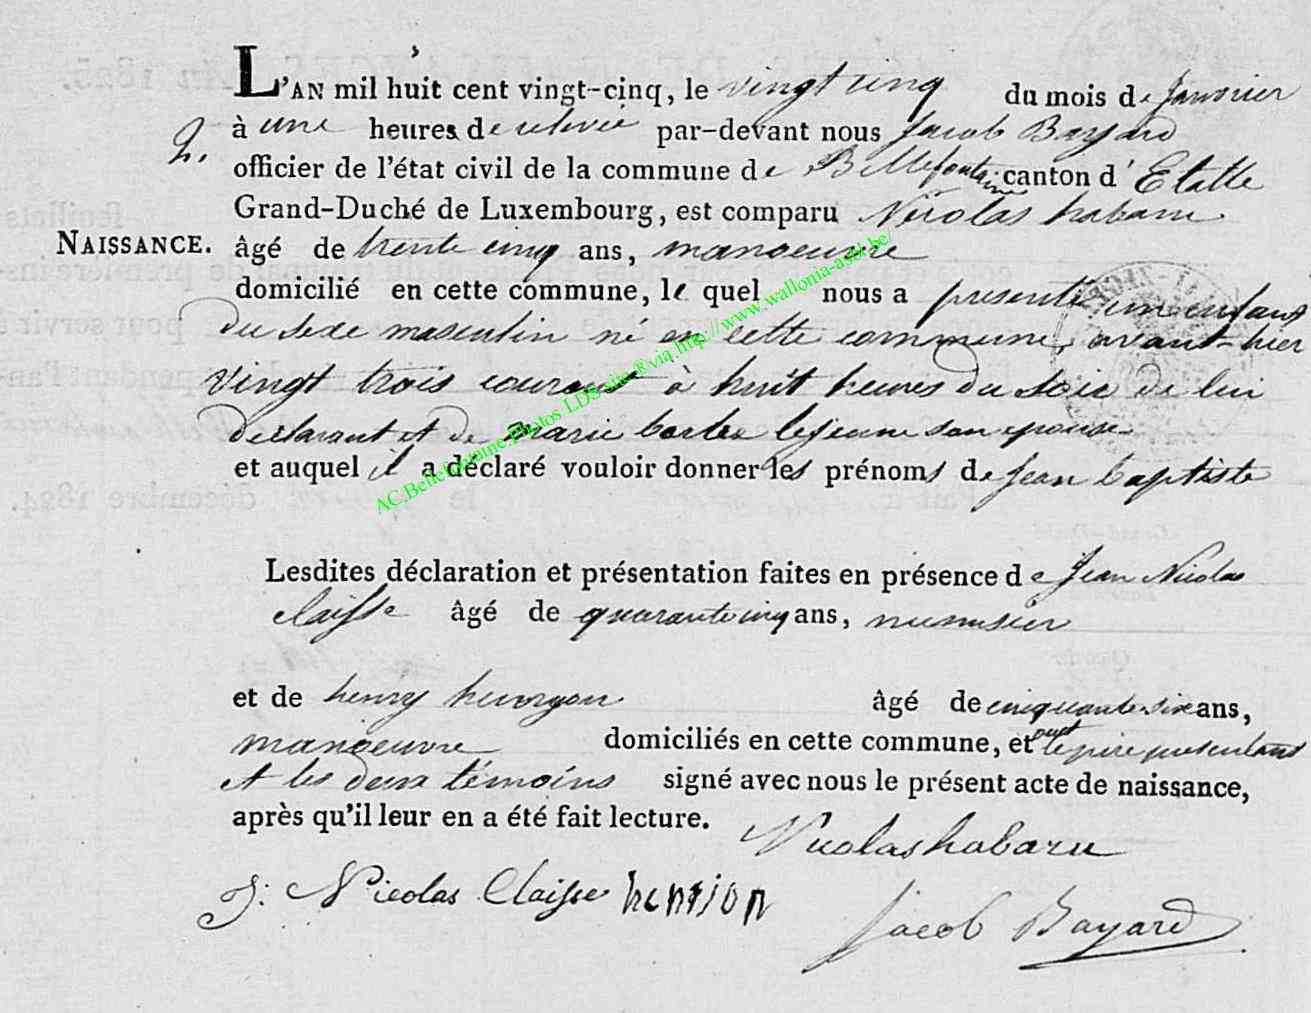 L'AN mil huit cent vingt-cinq, le vingt cinq du mois de Janvier
2. à une heures de relevée par-devant nous Jacob Bayard
officier de l'état civil de la commune de Bellefontaine canton d'Etalle
Grand-Duché de Luxembourg, est comparu Nicolas habaru
NAISSANCE. âgé de trente cinq ans, manoeuvre
domicilié en cette commune, le quel nous a presenté un enfant
du sexe masculin né en cette commune, avant-hier
vingt trois courant à huit heures du soir de lui
déclarant et de Marie lejeune son epouse
et auquel il a déclaré vouloir donner les prénoms de Jean baptiste
AC.Bellefontaine,Photos LDS-site ®viq.http://www.wallonia-asbl.be/
Lesdites déclaration et présentation faites en présence de Jean Nicolas
claisse âgé de quarante cinq ans, menusier
et de henry henryon âgé de cinquante six ans,
manoeuvre domiciliés en cette commune, et ont le père presentant
et les deux témoins signé avec nous le présent acte de naissance,
après qu'il leur en a été fait lecture.
Nicolas habaru
J: Nicolas Claisse henrion
Jacob Bayard